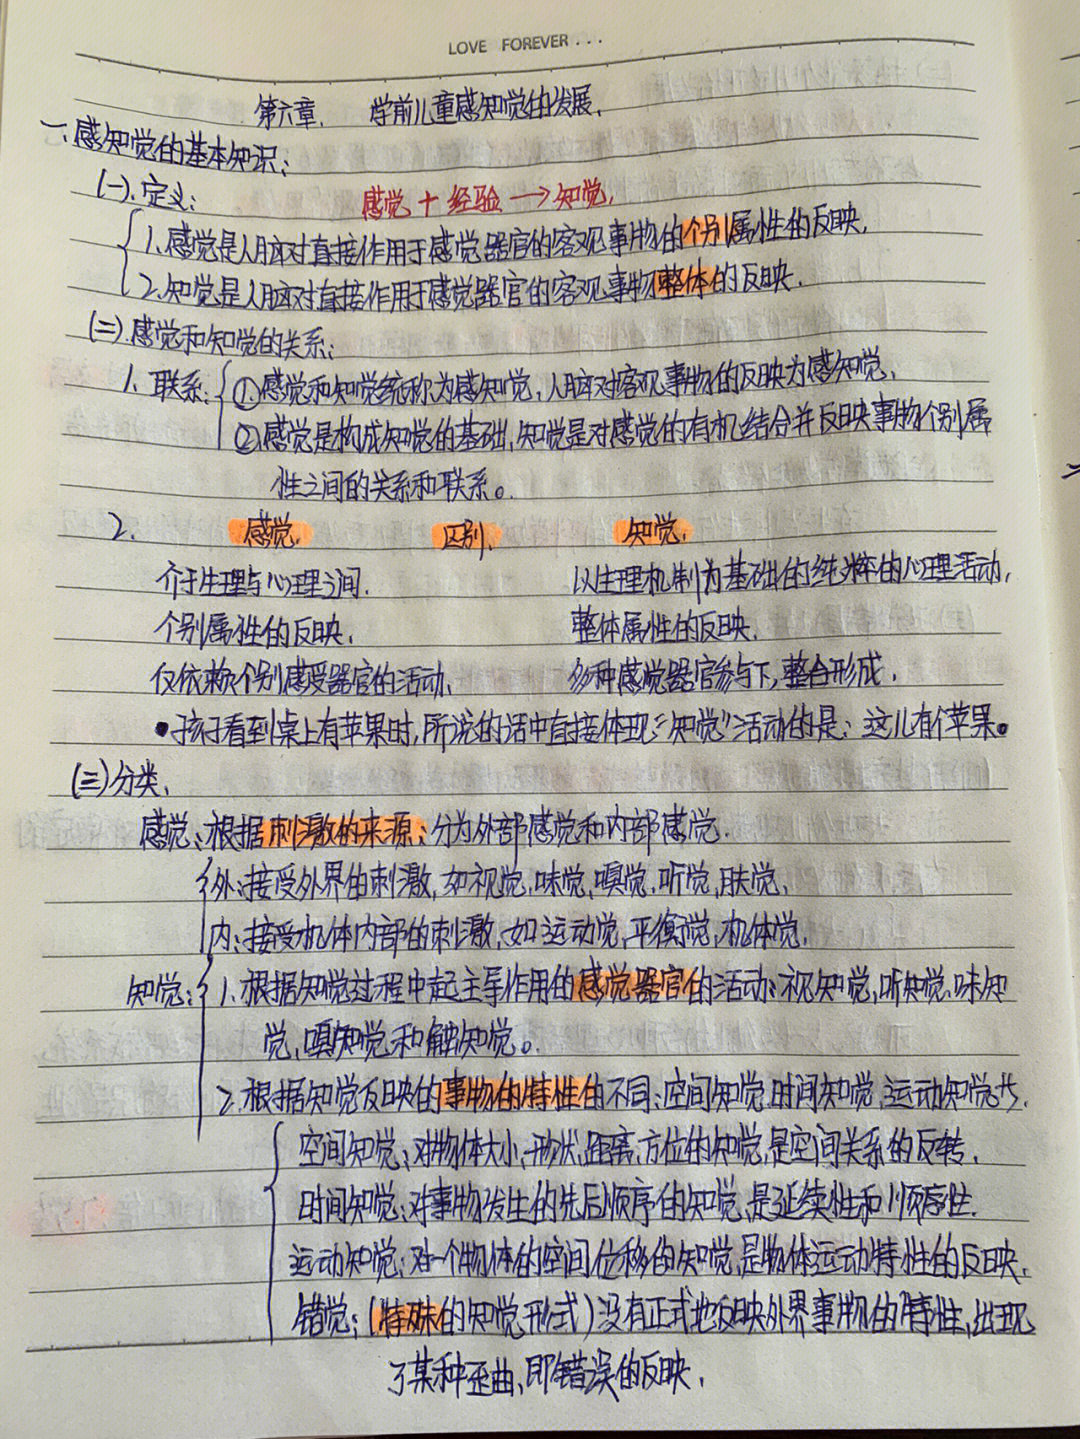 LOVE FOREVER...
第六章. 学前儿童感知觉的发展.
一.感知觉的基本知识:
(一).定义: 感觉+经验→知觉.
1.感觉是人脑对直接作用于感觉器官的客观事物的个别属性的反映.
2.知觉是人脑对直接作用于感觉器官的客观事物整体的反映.
(二).感觉和知觉的关系:
1.联系:①感觉和知觉统称为感知觉,人脑对客观事物的反映为感知觉.
②感觉是构成知觉的基础,知觉是对感觉的有机结合并反映事物个别属
性之间的关系和联系。
2. 感觉. 区别. 知觉.
介于生理与心理之间. 以生理机制为基础的纯粹的心理活动.
个别属性的反映. 整体属性的反映.
仅依赖个别感受器官的活动. 多种感觉器官参与下,整合形成.
•孩子看到桌上有苹果时,所说的话中直接体现"知觉"活动的是:这儿有个苹果。
(三)分类.
感觉:根据刺激的来源:分为外部感觉和内部感觉.
外:接受外界的刺激,如视觉.味觉,嗅觉.听觉,肤觉.
内:接受机体内部的刺激,如运动觉,平衡觉,机体觉.
知觉:1.根据知觉过程中起主导作用的感觉器官的活动:视知觉,听知觉.味知
觉,嗅知觉和触知觉。
2.根据知觉反映的事物的特性的不同:空间知觉,时间知觉,运动知觉
空间知觉:对物体大小,形状,距离,方位的知觉,是空间关系的反转.
时间知觉:对事物发生的先后顺序的知觉,是延续性和顺序性.
运动知觉:对一个物体的空间位移的知觉,是物体运动特性的反映.
错觉:(特殊的知觉形式)没有正式地反映外界事物的特性,出现
了某种歪曲,即错误的反映.